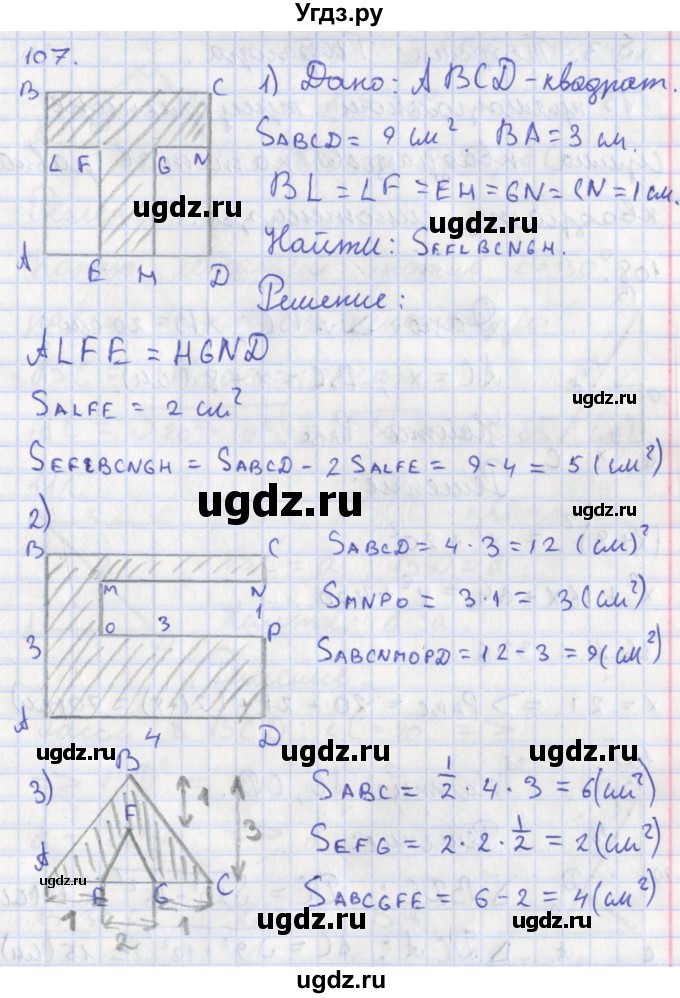 Угдз.ру
107.
B C
L F G N
A E H D
1) Дано: ABCD - квадрат.
SABCD = 9 см². BA = 3 см.
BL = LF = EH = GN = CN = 1 см.
Найти: SEFLBCNGH.
Решение:
ugdz.ru ugdz.ru
ALFE = HGND
SALFE = 2 см²
ugdz.ru
SEFLBCNGH = SABCD - 2 SALFE = 9 - 4 = 5 (см²)
ugdz.ru ugdz.ru
2)
B C
M N
O 3 1 P
3
A 4 D
SABCD = 4 · 3 = 12 (см)²
SMNPO = 3 · 1 = 3 (см²)
ugdz.ru
SABCNMOPD = 12 - 3 = 9 (см²)
ugdz.ru ugdz.ru ugdz.ru
3)
B
F
A E G C
1 3
1 2 1
SABC = 1/2 · 4 · 3 = 6 (см²)
SEFG = 2 · 2 · 1/2 = 2 (см²)
ugdz.ru ugdz.ru
SABCGFE = 6 - 2 = 4 (см²)
ugdz.ru ugdz.ru
ugdz.ru